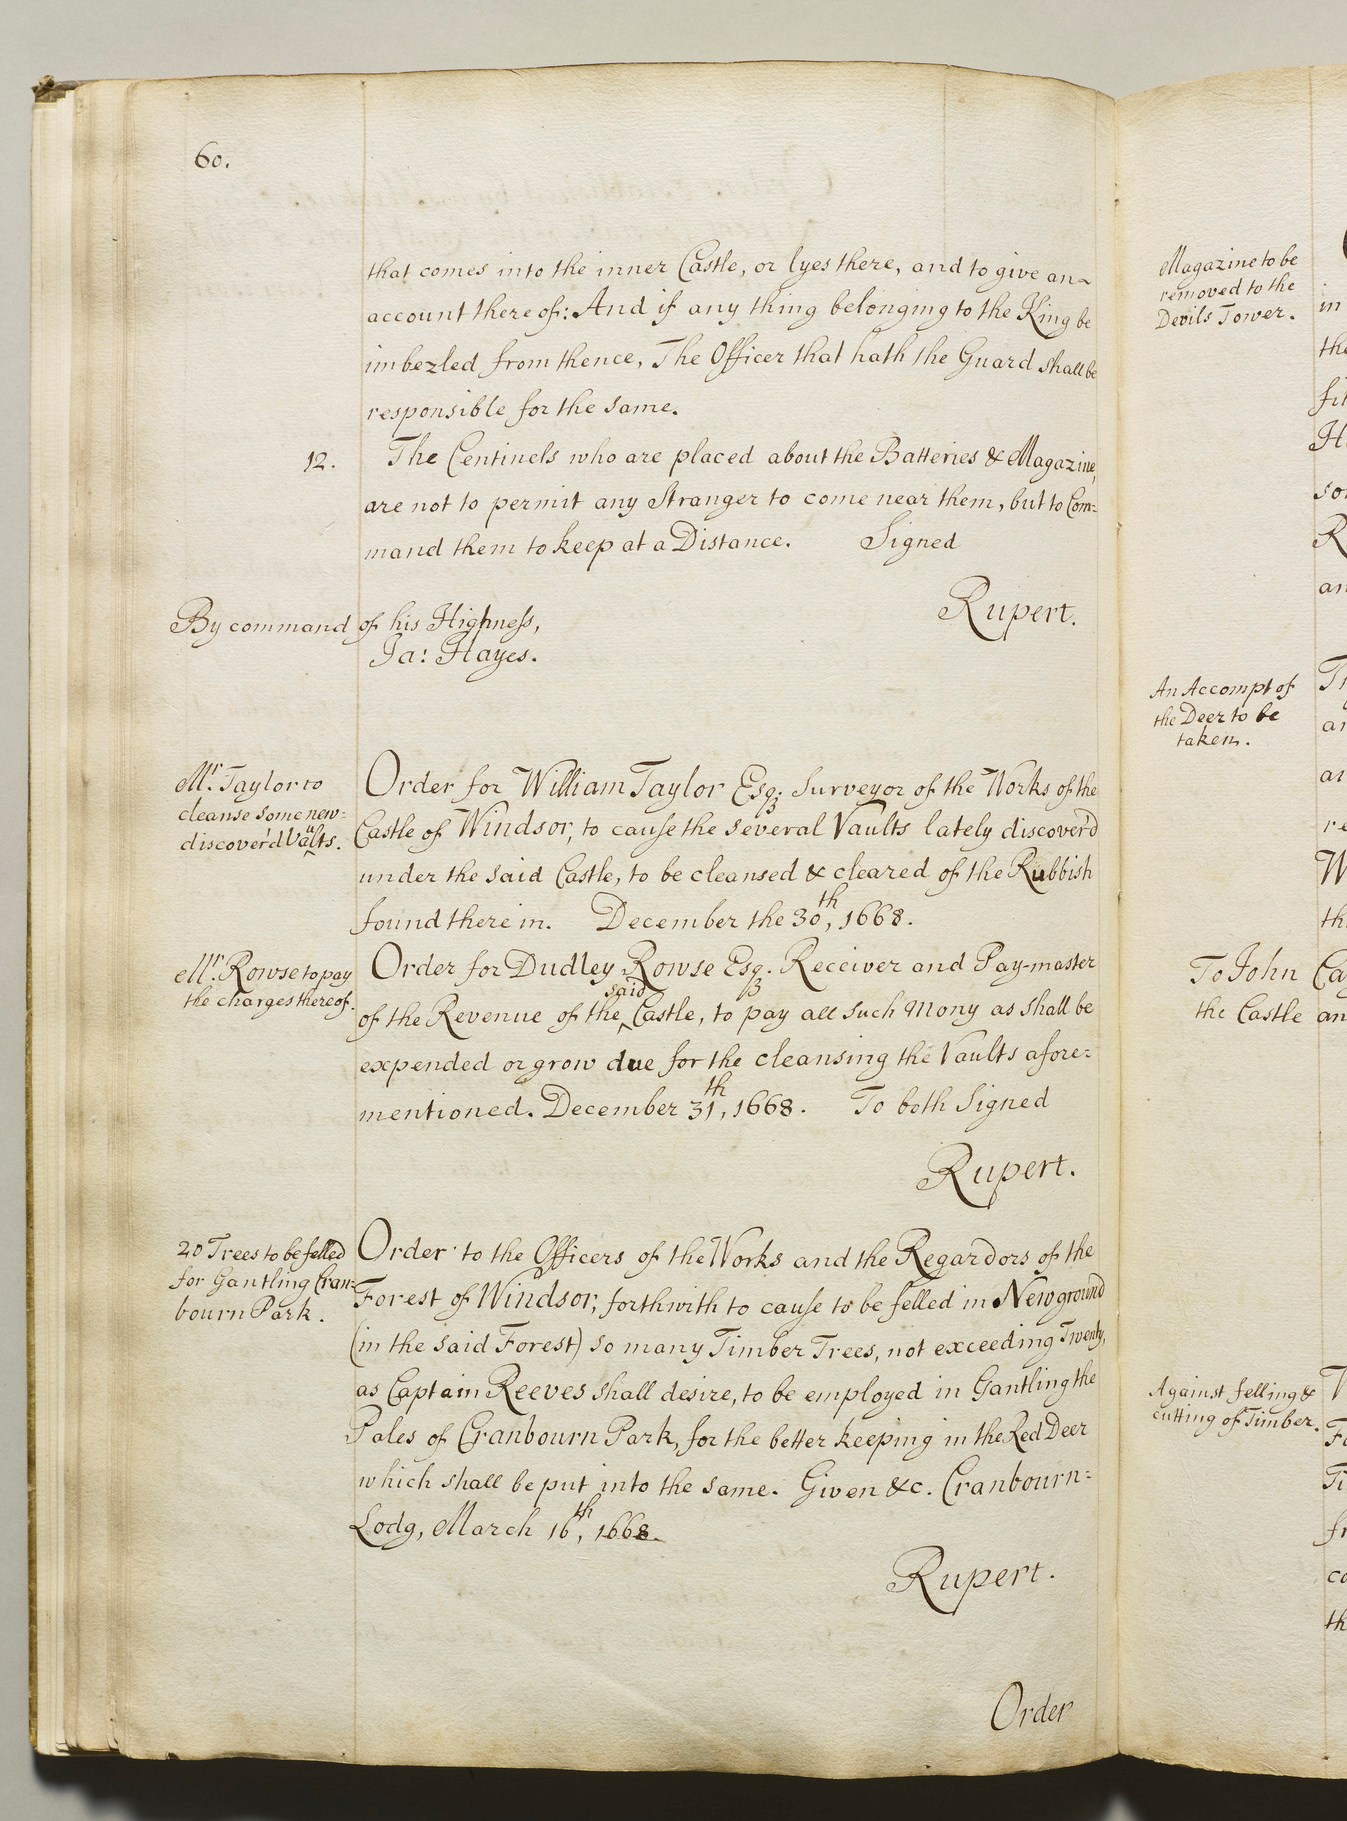 60.
that comes into the inner Castle, or lyes there, and to give an
account thereof: And if any thing belonging to the King be
imbezled from thence, The Officer that hath the Guard shall be
responsible for the same.
12. The Centinels who are placed about the Batteries & Magazine,
are not to permit any Stranger to come near them, but to Com=
mand them to keep at a Distance. Signed
Rupert.
By command of his Highness,
Ja: Hayes.
Mr. Taylor to
cleanse some new=
discover'd Vaults.
Order for William Taylor Esq; Surveyor of the Works of the
Castle of Windsor, to cause the several Vaults lately discover'd
under the said Castle, to be cleansed & cleared of the Rubbish
found therein. December the 30th, 1668.
Mr. Rowse to pay
the charges thereof.
Order for Dudley Rowse Esq. Receiver and Pay-master
of the Revenue of the said Castle, to pay all such Mony as shall be
expended or grow due for the cleansing the Vaults afore=
mentioned. December 31th, 1668. To both Signed
Rupert.
20 Trees to be felled
for Gantling Cran=
bourn Park.
Order to the Officers of the Works and the Regardors of the
Forest of Windsor, forthwith to cause to be felled in New ground
(in the said Forest) so many Timber Trees, not exceeding Twenty,
as Captain Reeves shall desire, to be employed in Gantling the
Pales of Cranbourn Park, for the better keeping in the Red Deer
which shall be put into the same. Given &c. Cranbourn=
Lodg, March 16th, 1668.
Rupert.
Order
Magazine to be
removed to the
Devils Tower.
in
the
An Accompt of
the Deer to be
taken.
To John
the Castle an
Against felling &
cutting of Timber.